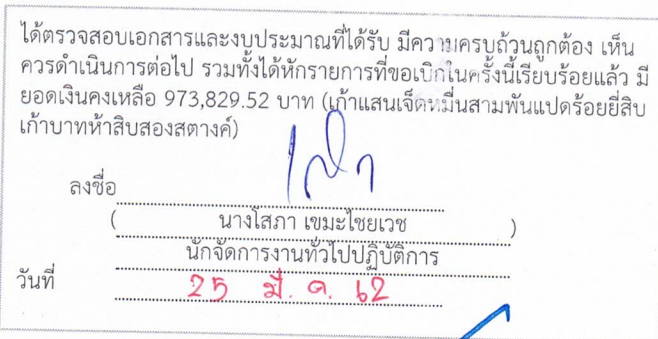 ได้ตรวจสอบเอกสารและงบประมาณที่ได้รับ มีความครบถ้วนถูกต้อง เห็น
ควรดำเนินการต่อไป รวมทั้งได้หักรายการที่ขอเบิกในครั้งนี้เรียบร้อยแล้ว มี
ยอดเงินคงเหลือ 973,829.52 บาท (เก้าแสนเจ็ดหมื่นสามพันแปดร้อยยี่สิบ
เก้าบาทห้าสิบสองสตางค์)
ลงชื่อ
( นางโสภา เขมะไชยเวช )
นักจัดการงานทั่วไปปฏิบัติการ
วันที่ 25 มี.ค. 62